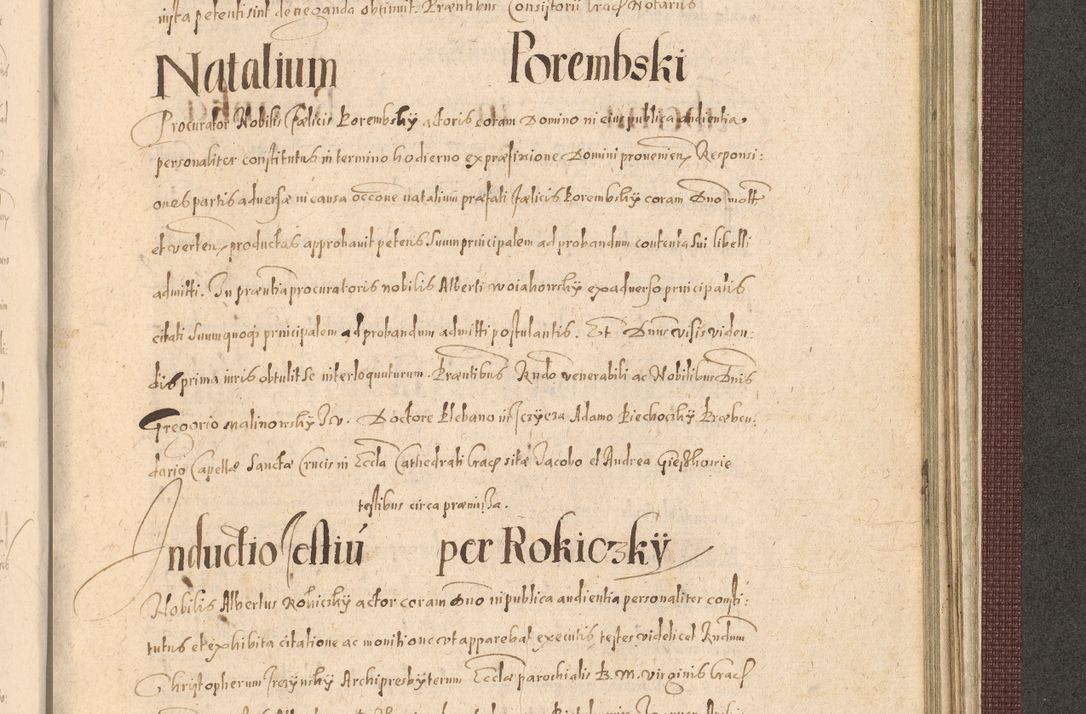 iusta petenti sint deneganda obtinuit. Præntibus Consistorii Crac Notariis
Natalium Porembski
Procurator Nobilis Fælicis Porembsky actoris coram Domino in eius publica audientia
personaliter constitutus in termino hodierno ex præfixione Domini provenien Responsi:
ones partis adversæ in causa occone natalium præfati Fælicis Porembsky coram Dno mott
et verten productas approbavit petens Suum principalem ad probandum contenta sui libelli
admitti. In præntia procuratoris nobilis Alberti Woiakowsky ex adverso principalis
citati Suum quoq principalem ad probandum admitti postulantis. Et Dnus visis viden:
dis prima iuris obtulit se interloquuturum. Præntibus Rndo venerabili ac Nobilibus Dnis
Gregorio Malinowsky I.V. Doctore Plebano in Adamo Piechoczky Præben:
dario Capellæ Sanctæ Crucis in Eccla Cathedrali Crac sitæ Jacobo et Andrea
testibus circa præmissa.
Inductio Testiū per Rokiczkÿ
Nobilis Albertus Rokicsky actor coram Dno in publica audientia personaliter consti:
tutus et exhibita citatione ac monitione ut apparebat executis testes videlicet Rndum
Christopherum Archipresbyterum Ecclæ parochialis B. M. Virginis Crac